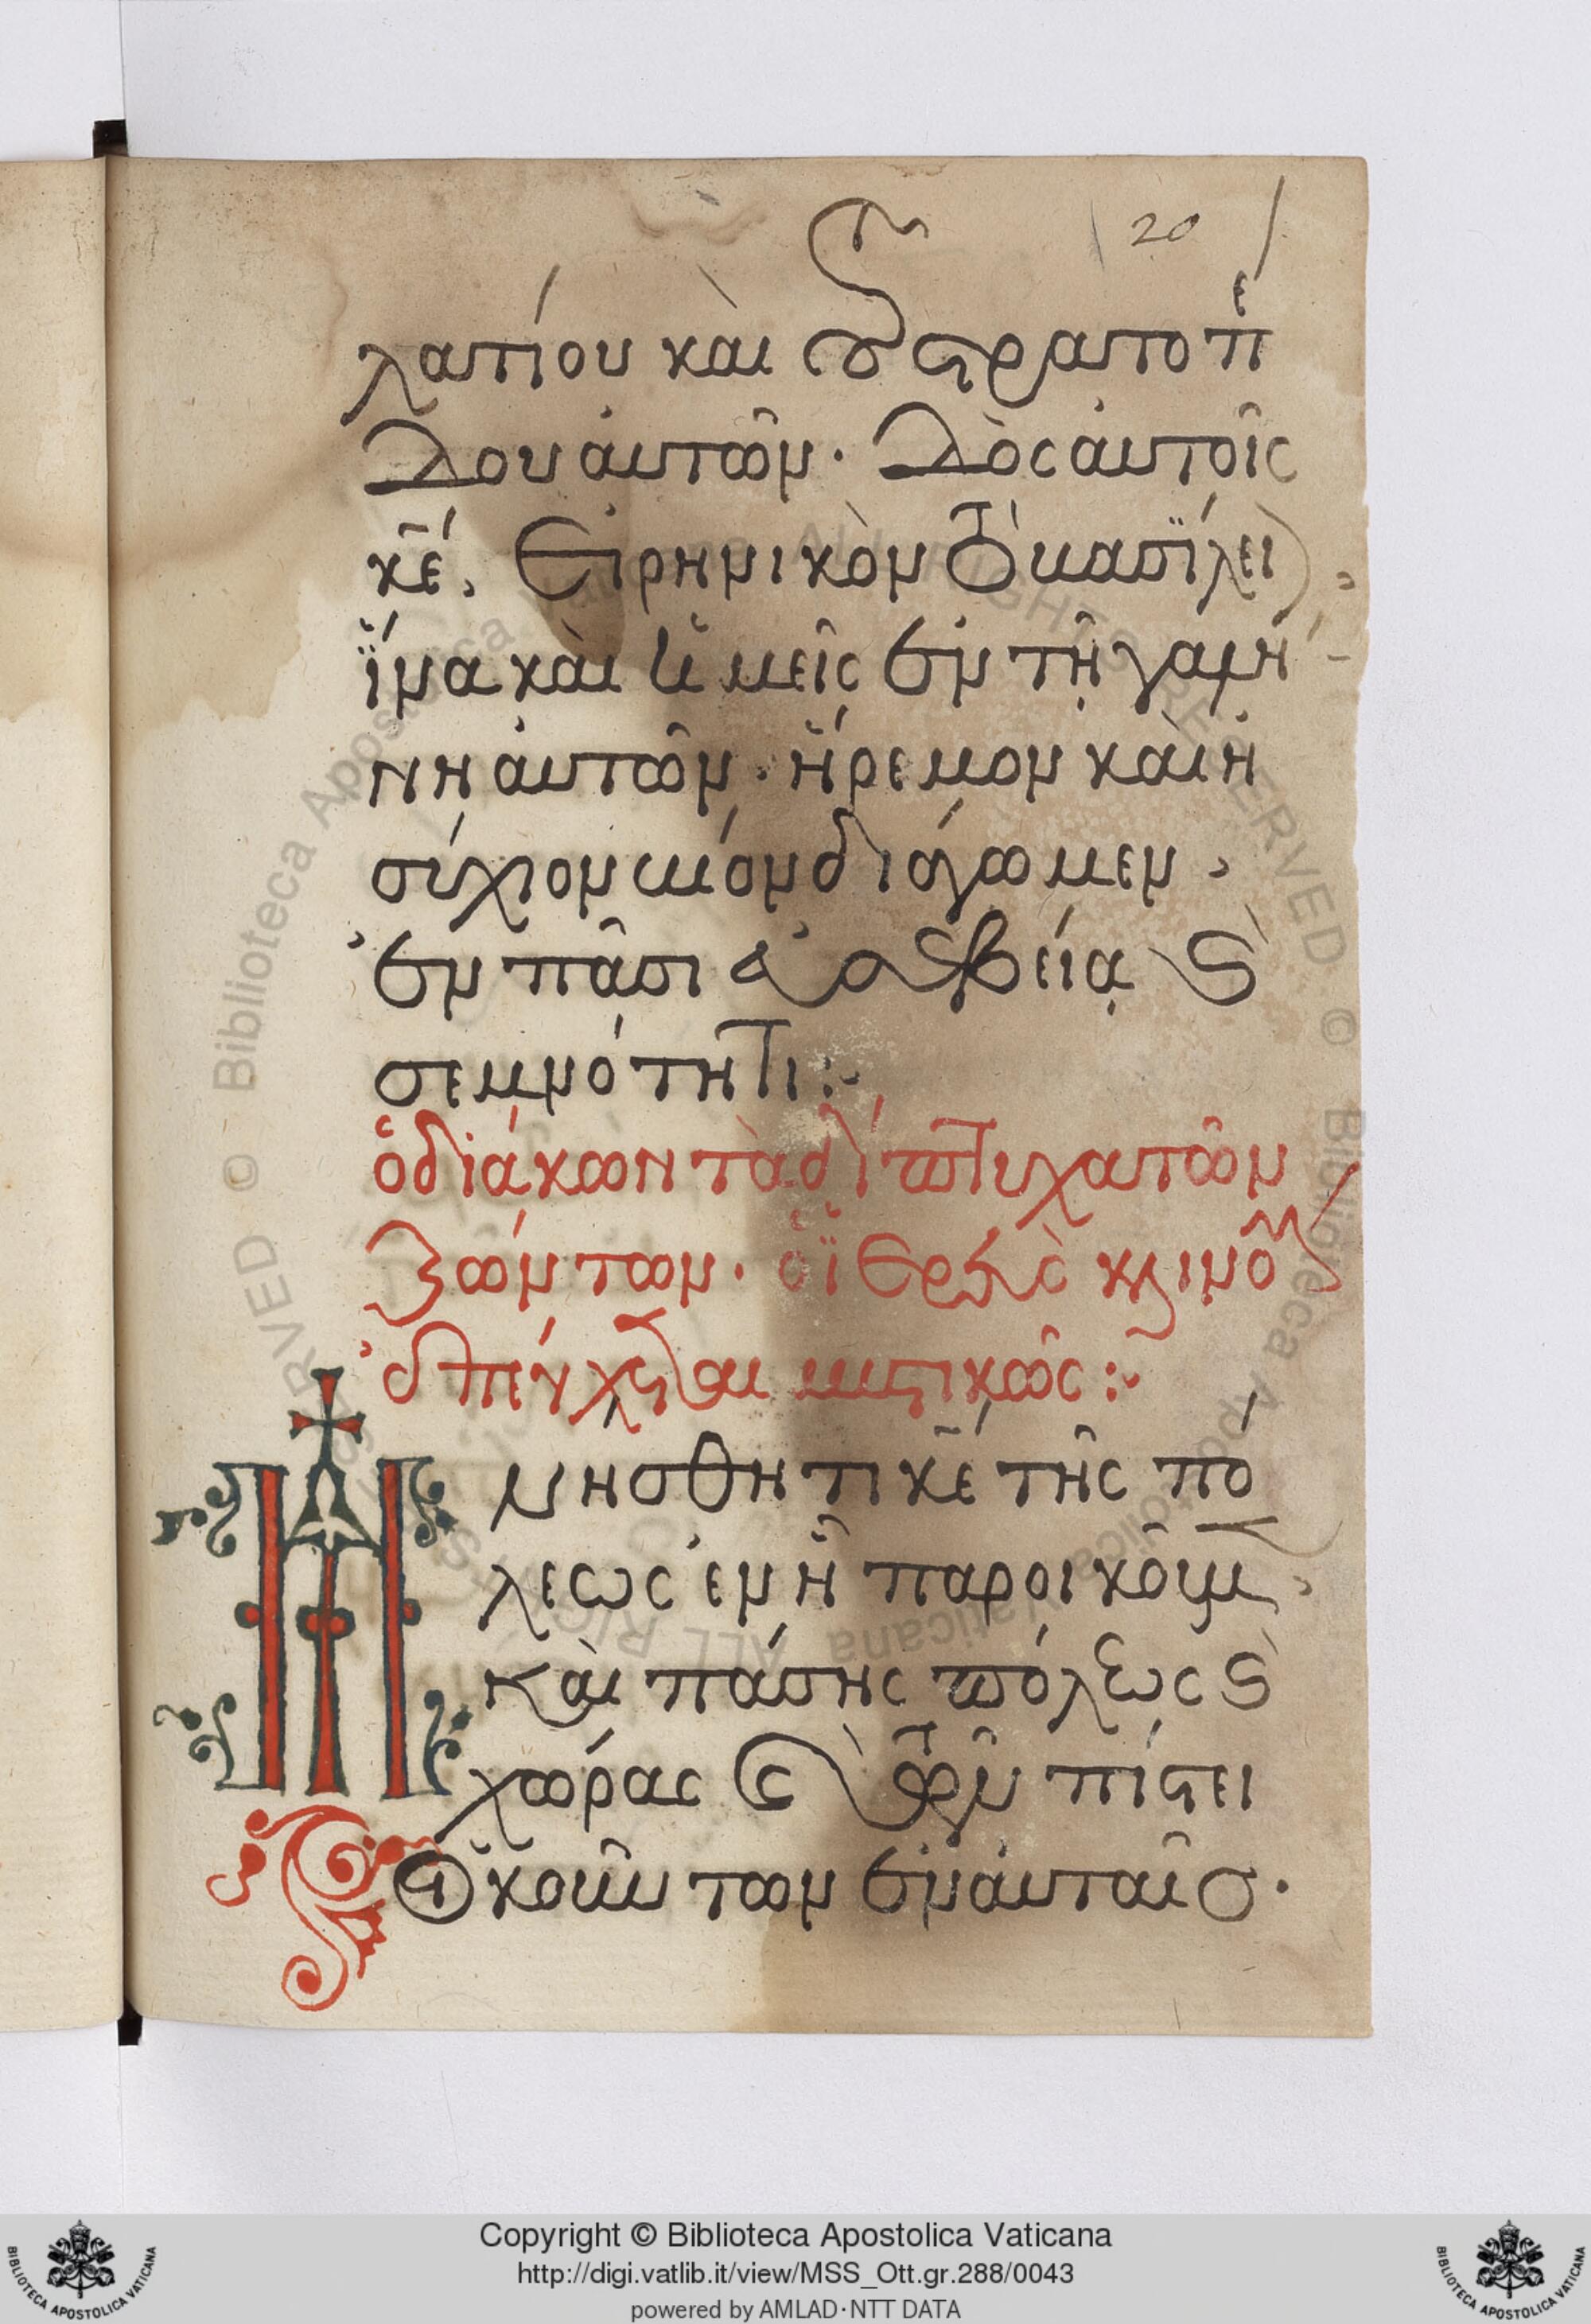 20
λατίου καὶ τοῦ στρατοπέ
δου αυτῶν· Δὸς αυτοῖς
κε, Ειρηνικὸν τὸ βασίλειον,
ϊνα καὶ ημεῖς εν τῆ γαλή
νη αυτῶν· ήρεμον καὶ η
σύχιον βίον διάγωμεν,
εν πάση ευσεβεία καὶ
σεμνότητι:
ὁ διάκων τὰ δίπτυχα τῶν
ζώντων· ὁ ϊερεὺς κλινόμενος
επεύχεται μυστικῶς:
Μνήσθητι κε τῆς πό
λεως εν ῆ παροικοῦμεν,
καὶ πάσης πόλεως καὶ
χώρας καὶ τῶν πίστει
οικούντων εν αυταῖς·
Copyright © Biblioteca Apostolica Vaticana
http://digi.vatlib.it/view/MSS_Ott.gr.288/0043
powered by AMLAD·NTT DATA
BIBLIOTECA APOSTOLICA VATICANA
BIBLIOTECA APOSTOLICA VATICANA